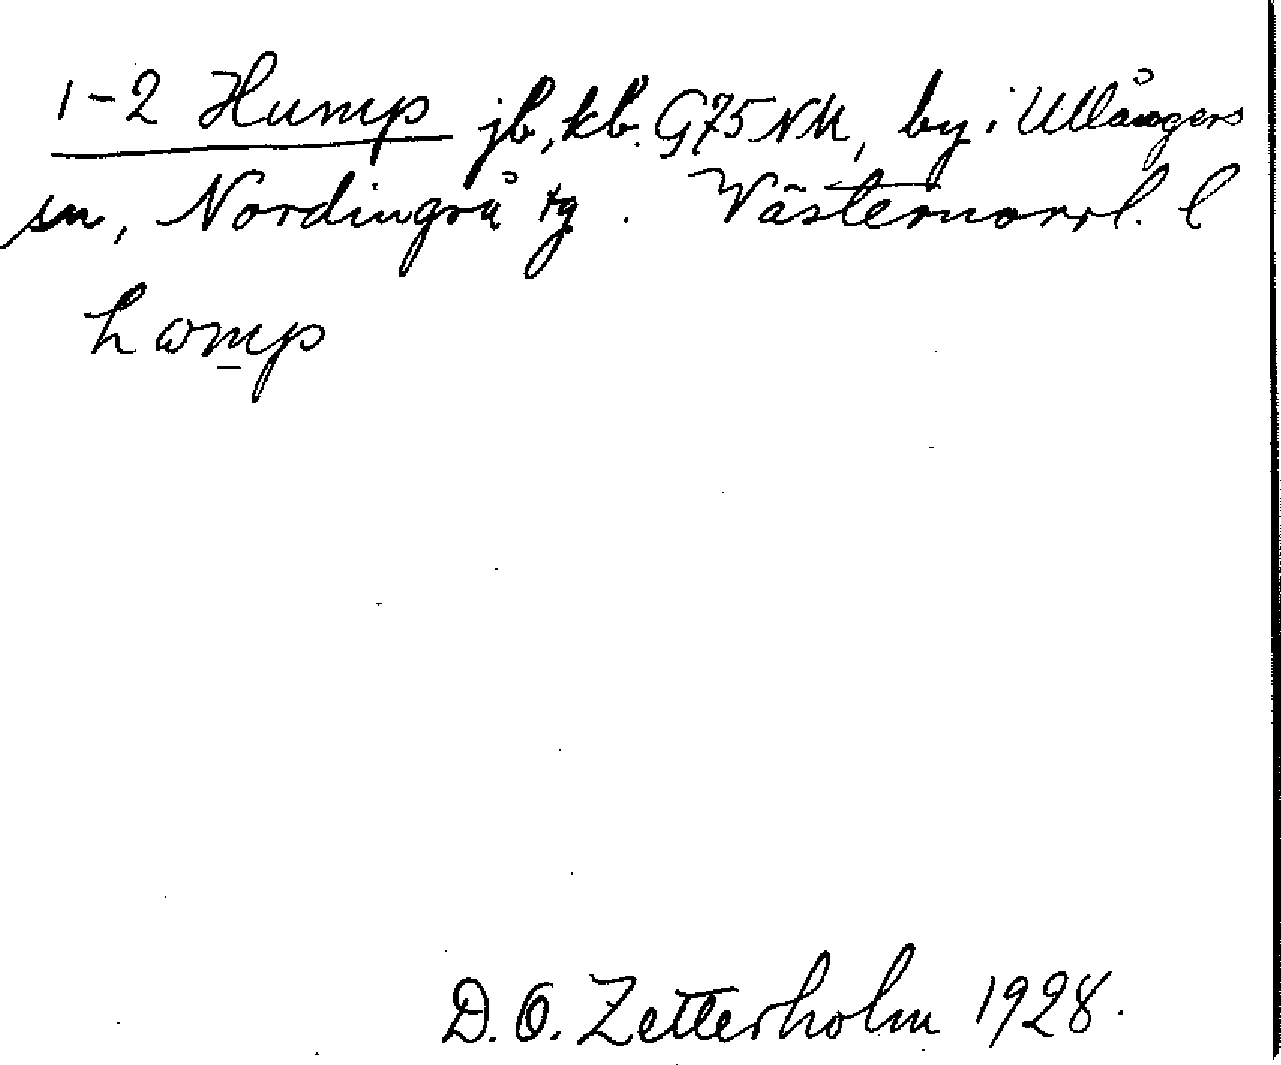 1-2 Hump jb, kb. G75 NM, by i Ullångers
sn, Nordingrå tg. Västernorrl. l
hωmp
D. O. Zetterholm 1928.